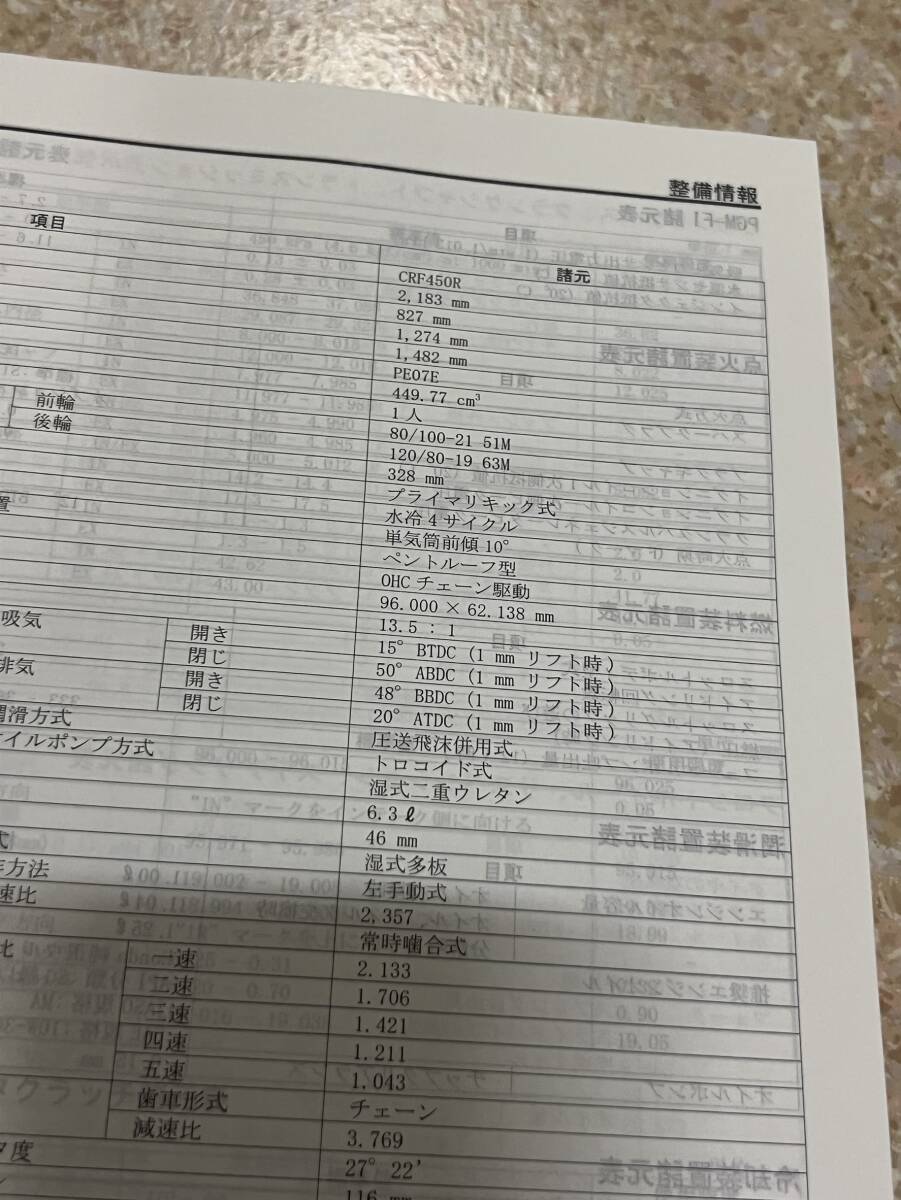 整備情報
項目 諸元
CRF450R
2,183 mm
827 mm
1,274 mm
1,482 mm
PE07E
449.77 cm³
1 人
前輪 80/100-21 51M
後輪 120/80-19 63M
328 mm
プライマリキック式
置 水冷 4 サイクル
単気筒前傾 10°
ペントルーフ型
OHC チェーン駆動
96.000 × 62.138 mm
13.5 : 1
吸気 開き 15° BTDC (1 mm リフト時)
閉じ 50° ABDC (1 mm リフト時)
排気 開き 48° BBDC (1 mm リフト時)
閉じ 20° ATDC (1 mm リフト時)
潤滑方式 圧送飛沫併用式
オイルポンプ方式 トロコイド式
湿式二重ウレタン
6.3 ℓ
46 mm
式 湿式多板
作方法 左手動式
速比 2,357
常時噛合式
比 一速 2.133
二速 1.706
三速 1.421
四速 1.211
五速 1.043
歯車形式 チェーン
減速比 3.769
タ度 27° 22'
116 mm